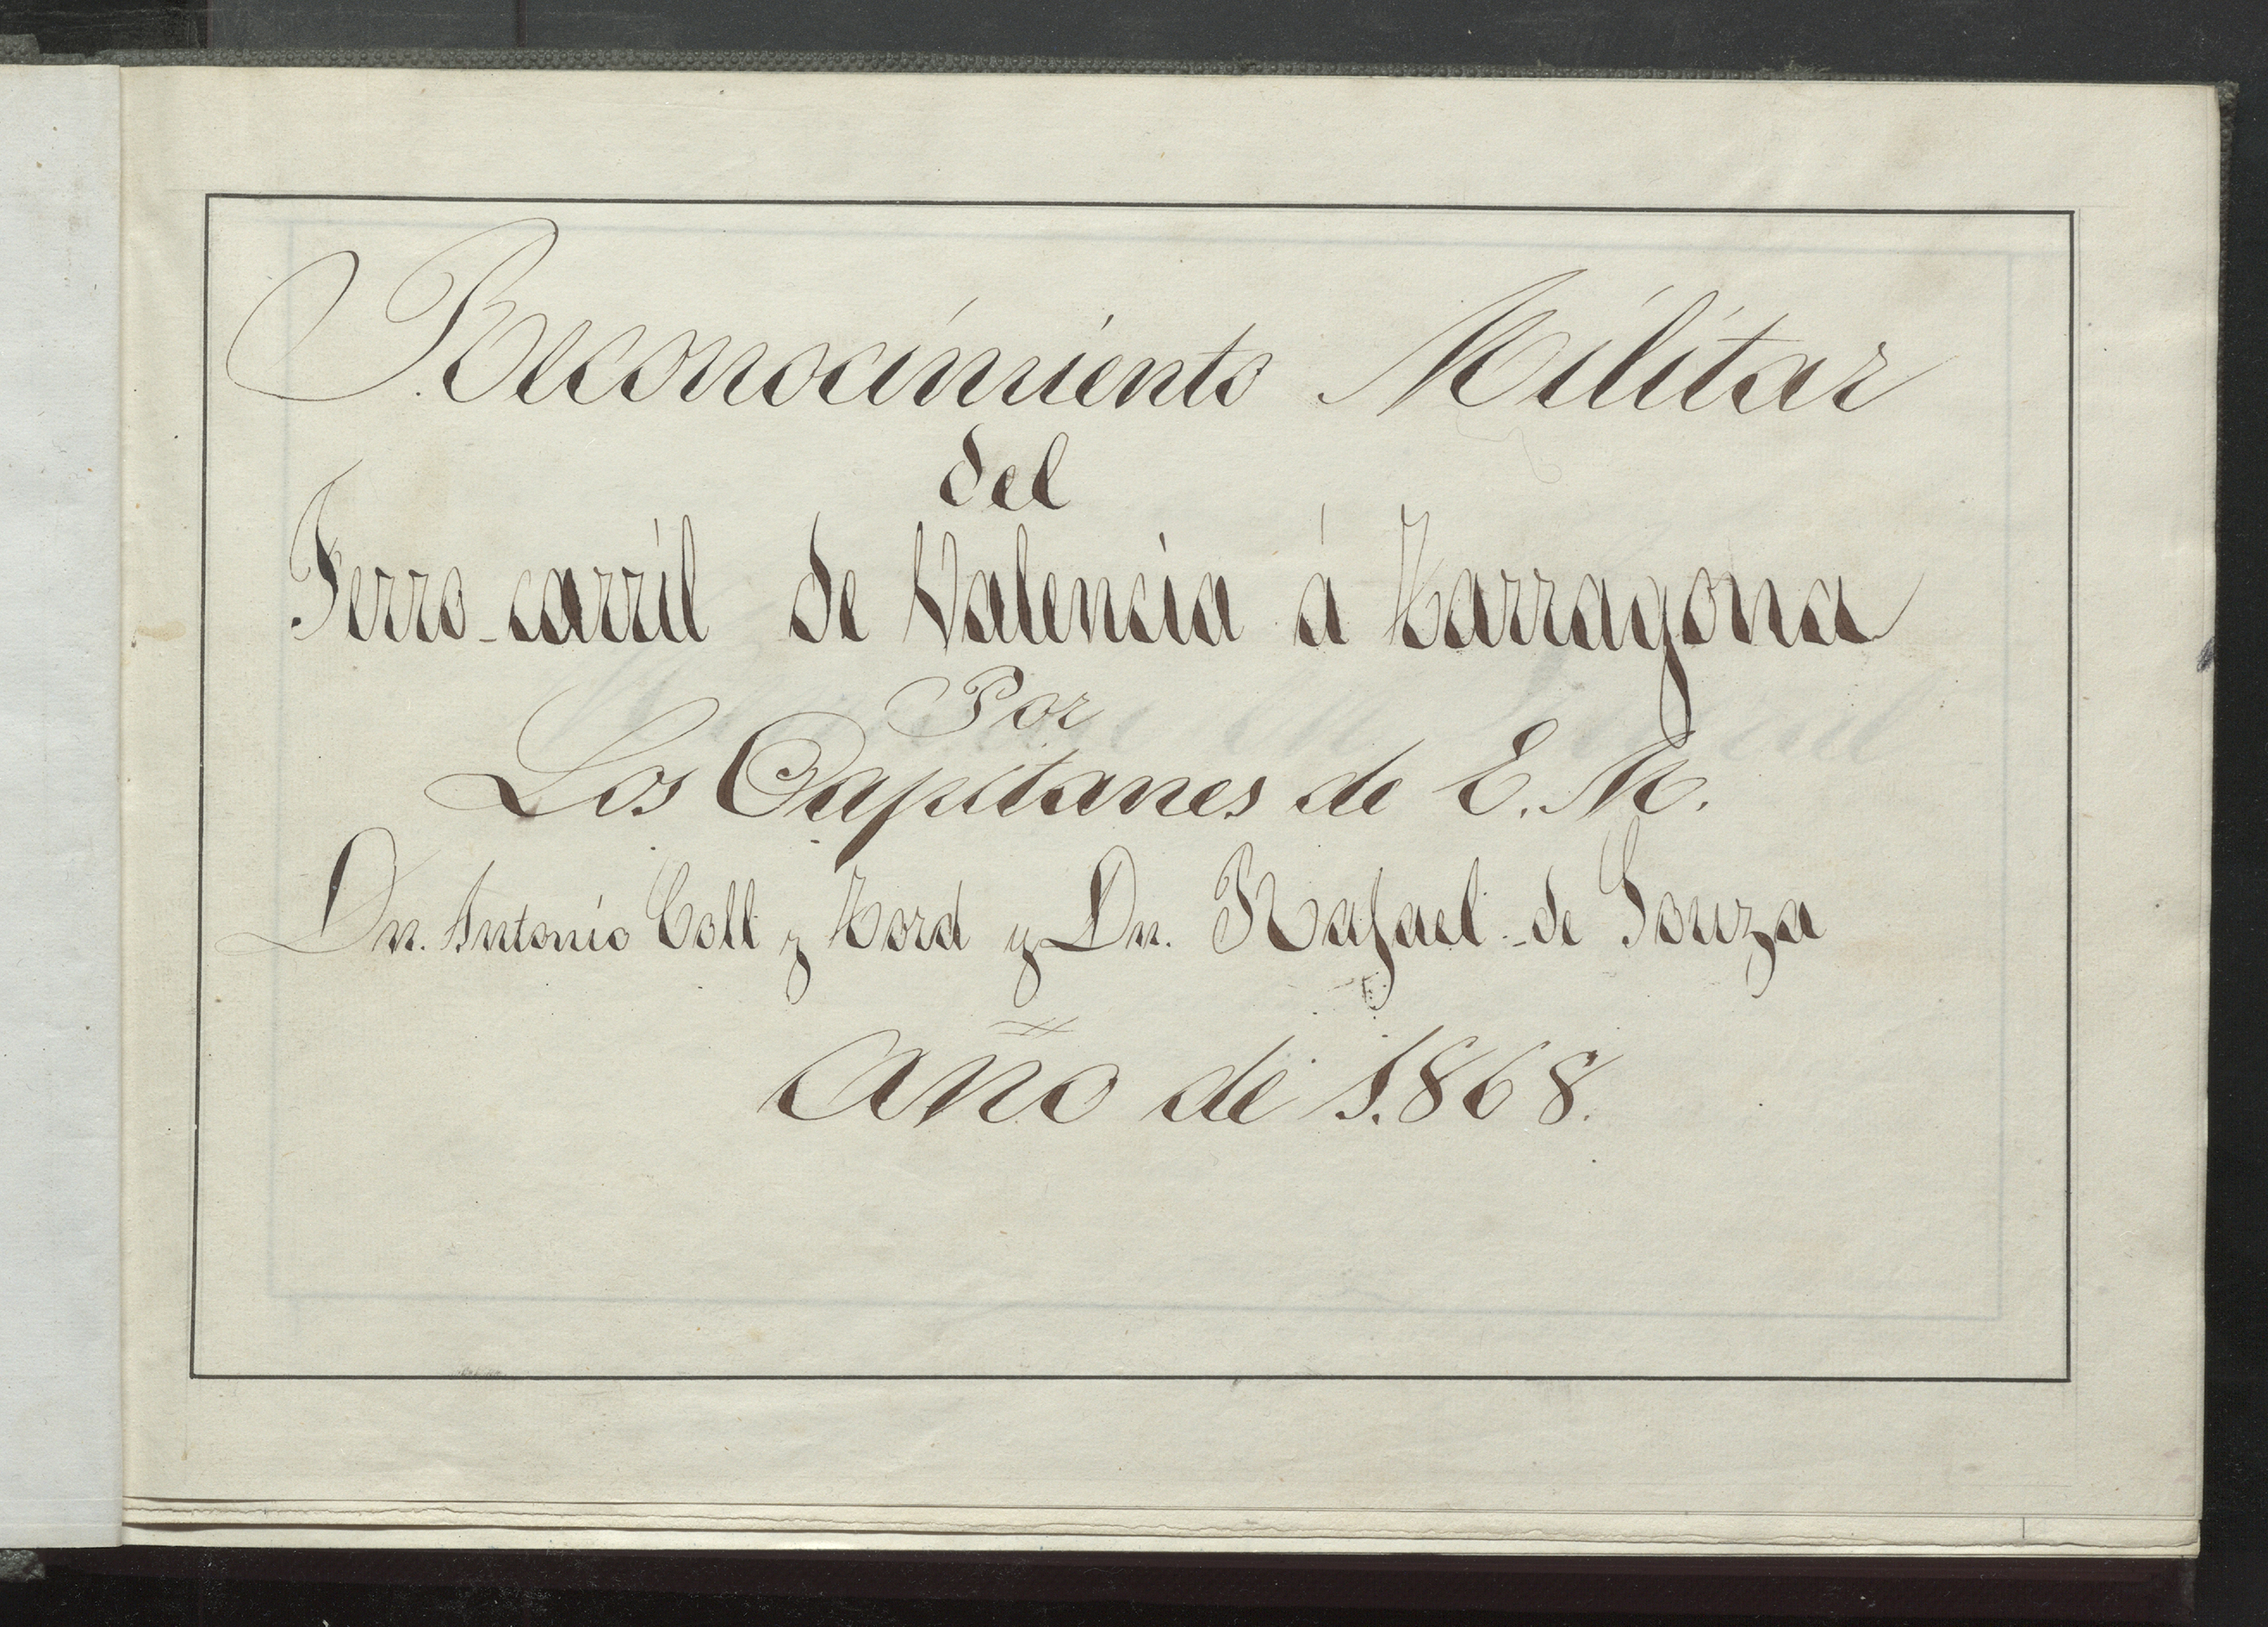 Reconocimiento Militar
del
Ferro-carril de Valencia á Tarragona
Por
Los Capitanes de E. M.
Dn. Antonio Coll y Tord y Dn. Rafael de Souza
Año de 1.868.